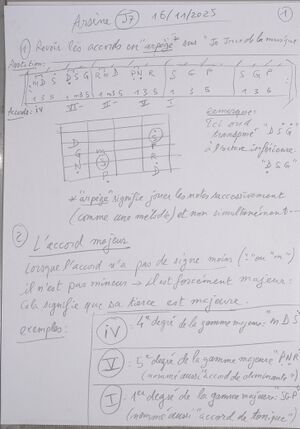 Arsène J7 16/11/2025 1
① Revoir les accords en "arpège" sur "Je Joue de la musique"
Partition:
m D S D S G R m D P N R S G P S G P
1 3 5 1 3 5 1 m3 5 1 3 5 1 3 5 1 3 5
Accords: iv VI- II- V I
Remarque:
Ici on a
transposé "D S G"
à l'octave inférieure:
"D S G"
* "arpège" signifie jouer les notes successivement
(comme une mélodie) et non simultanément
② L'accord majeur
Lorsque l'accord n'a pas de signe moins (- ou "m")
il n'est pas mineur → il est forcément majeur:
Cela signifie que sa tierce est majeure.
exemples:
iv = 4e degré de la gamme majeure "m D S"
V = 5e degré de la gamme majeure "P N R"
(nommé aussi "accord de dominante")
I = 1er degré de la gamme majeure: "S G P"
(nommé aussi "accord de tonique")